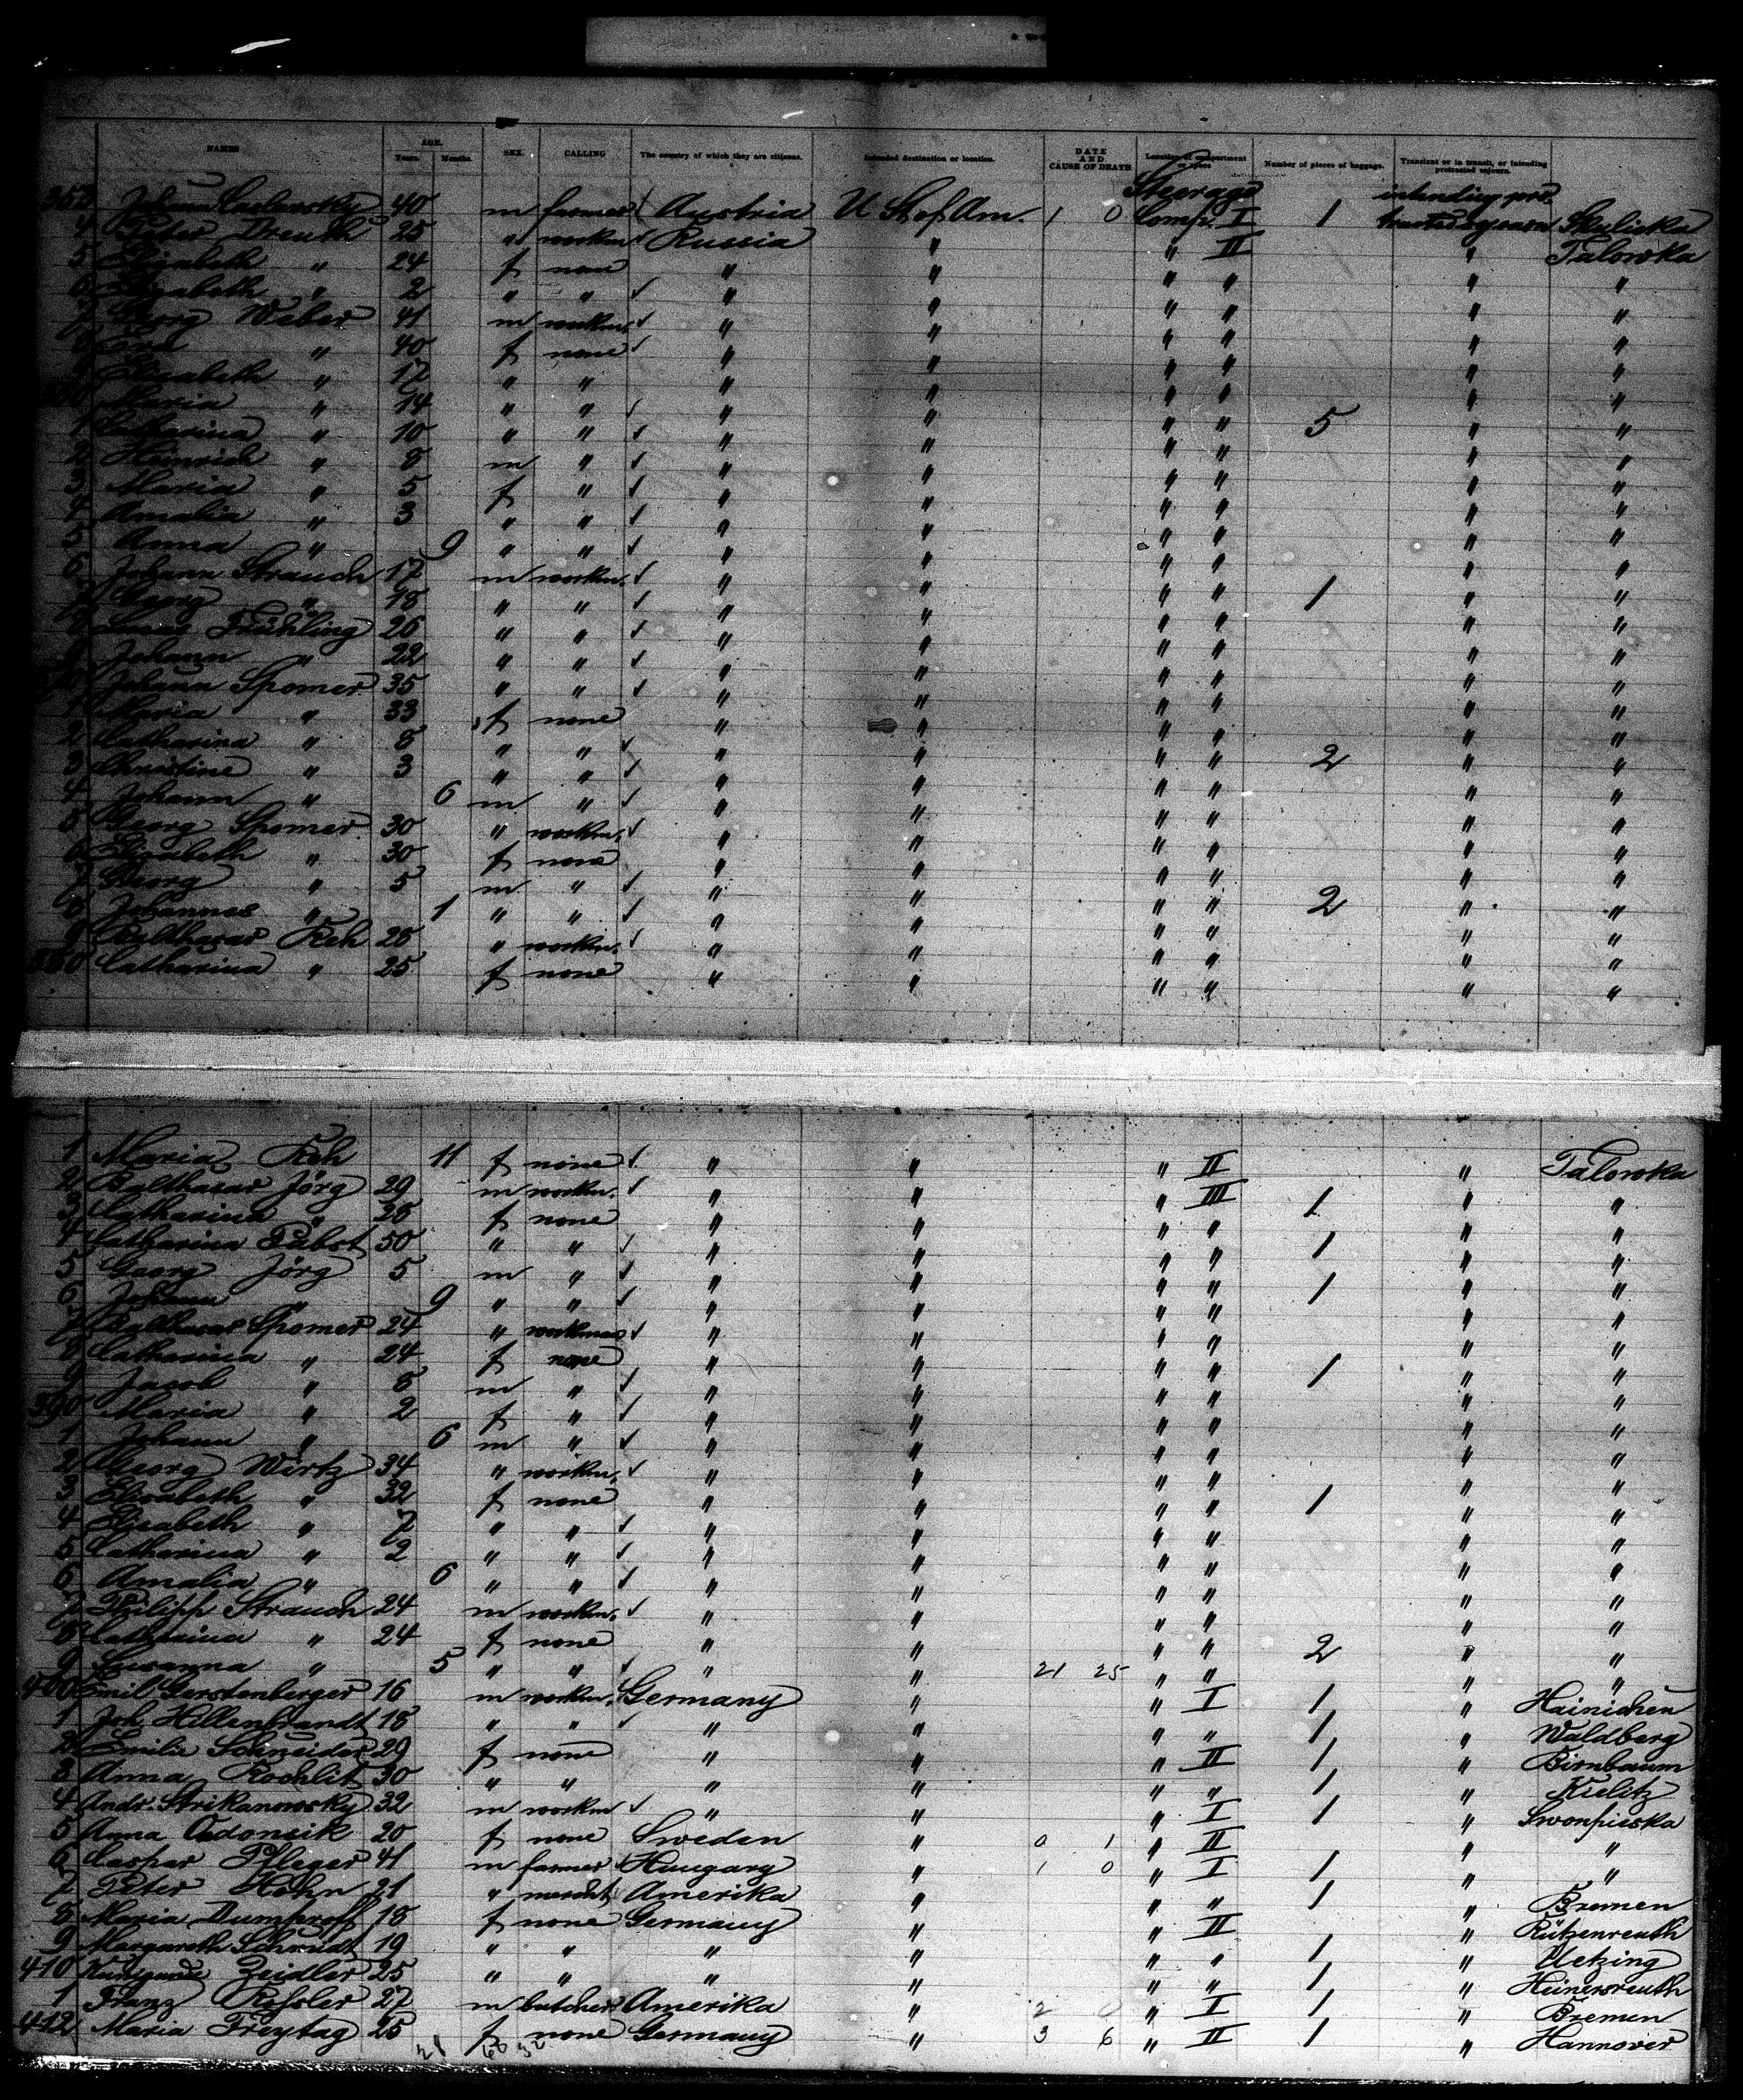 NAMES AGE. Years. Months. SEX. CALLING The country of which they are citizens. Intended destination or location. DATE AND CAUSE OF DEATH Location of compartment or space Number of pieces of baggage. Transient or in transit, or intending protracted sojourn.
Steerage intending pro-
353 Johann 40 m farmer Austria U St of Am. 1 0 Comp. I 1 tracted sojourn Skuliska
4 Peter Dreuth 25 " workm Russia " " II " Talowka
5 Elisabeth " 24 f none " " " " " "
6 Elisabeth " 2 " " " " " " " "
7 Georg Weber 41 m workm. " " " " " "
8 " 40 f none " " " " " "
9 Elisabeth " 17 " " " " " " " "
360 Maria " 14 " " " " " " 5 " "
1 Catharina " 10 " " " " " " " "
2 Heinrich " 8 m " " " " " " "
3 Maria " 5 f " " " " " " "
4 Amalia " 3 " " " " " " " "
5 Anna " 9 " " " " " " " "
6 Johann Strauch 17 m workm. " " " " " "
7 Georg " 18 " " " " " " 1 " "
8 Frühling 26 " " " " " " " "
9 Johann " 22 " " " " " " " "
370 Johann Spomer 35 " " " " " " " "
1 Maria " 33 f none " " " " " "
2 Catharina " 8 " " " " " " 2 " "
3 Christine " 3 " " " " " " " "
4 Johann " 6 m " " " " " " "
5 Georg Spomer 30 " workm. " " " " " "
6 Elisabeth " 30 f none " " " " " "
7 Georg " 5 m " " " " " 2 " "
8 Johannes " 1 " " " " " " " "
9 Balthasar Reh 28 " workm. " " " " " "
380 Catharina " 25 f none " " " " " "
1 Maria Reh 11 f none " " " II " Talowka
2 Balthasar Jörg 29 m workm. " " " III 1 " "
3 Catharina " 28 f none " " " " " "
4 Catharina Pabst 50 " " " " " " 1 " "
5 Georg Jörg 5 m " " " " " 1 " "
6 Johann " 9 " " " " " " " "
7 Balthasar Spomer 24 " workman " " " " " "
8 Catharina " 24 f none " " " " 1 " "
9 Jacob " 8 m " " " " " " "
390 Maria " 2 f " " " " " " "
1 Johann " 6 m " " " " " " "
2 Georg Wirtz 34 " workm. " " " " " "
3 Elisabeth " 32 f none " " " " 1 " "
4 Elisabeth " 7 " " " " " " " "
5 Catharina " 2 " " " " " " " "
6 Amalia " 6 " " " " " " " "
7 Philipp Strauch 24 m workm. " " " " " "
8 Catharina " 24 f none " " " " 2 " "
9 Susanna " 5 " " " " 21 25 " " " "
400 Emil Gerstenberger 16 m workm. Germany " " I 1 " Hainichen
1 Joh. Hillenbrandt 18 " " " " " " 1 " Waldberg
2 Emilie Schneider 29 f none " " " II 1 " Birnbaum
3 Anna Rochlitz 30 " " " " " " 1 " Kielitz
4 Andr. Strikanowsky 32 m workm " " " I 1 " Swonpieska
5 Anna 20 f none Sweden " 0 1 " II " "
6 Caspar Pfleger 41 m farmer Hungary " 1 0 " I 1 " "
7 Peter Höhn 21 " mercht. Amerika " " " 1 " Bremen
8 Maria Dumproff 18 f none Germany " " II " Rützenreuth
9 Margareth Schmidt 19 " " " " " " 1 " Uetzing
410 Kunigunde Zeidler 25 " " " " " " 1 " Heinersreuth
1 Franz Kessler 27 m butcher Amerika " 2 0 " I 1 " Bremen
412 Maria Freytag 25 f none Germany " 3 6 " II 1 " Hannover